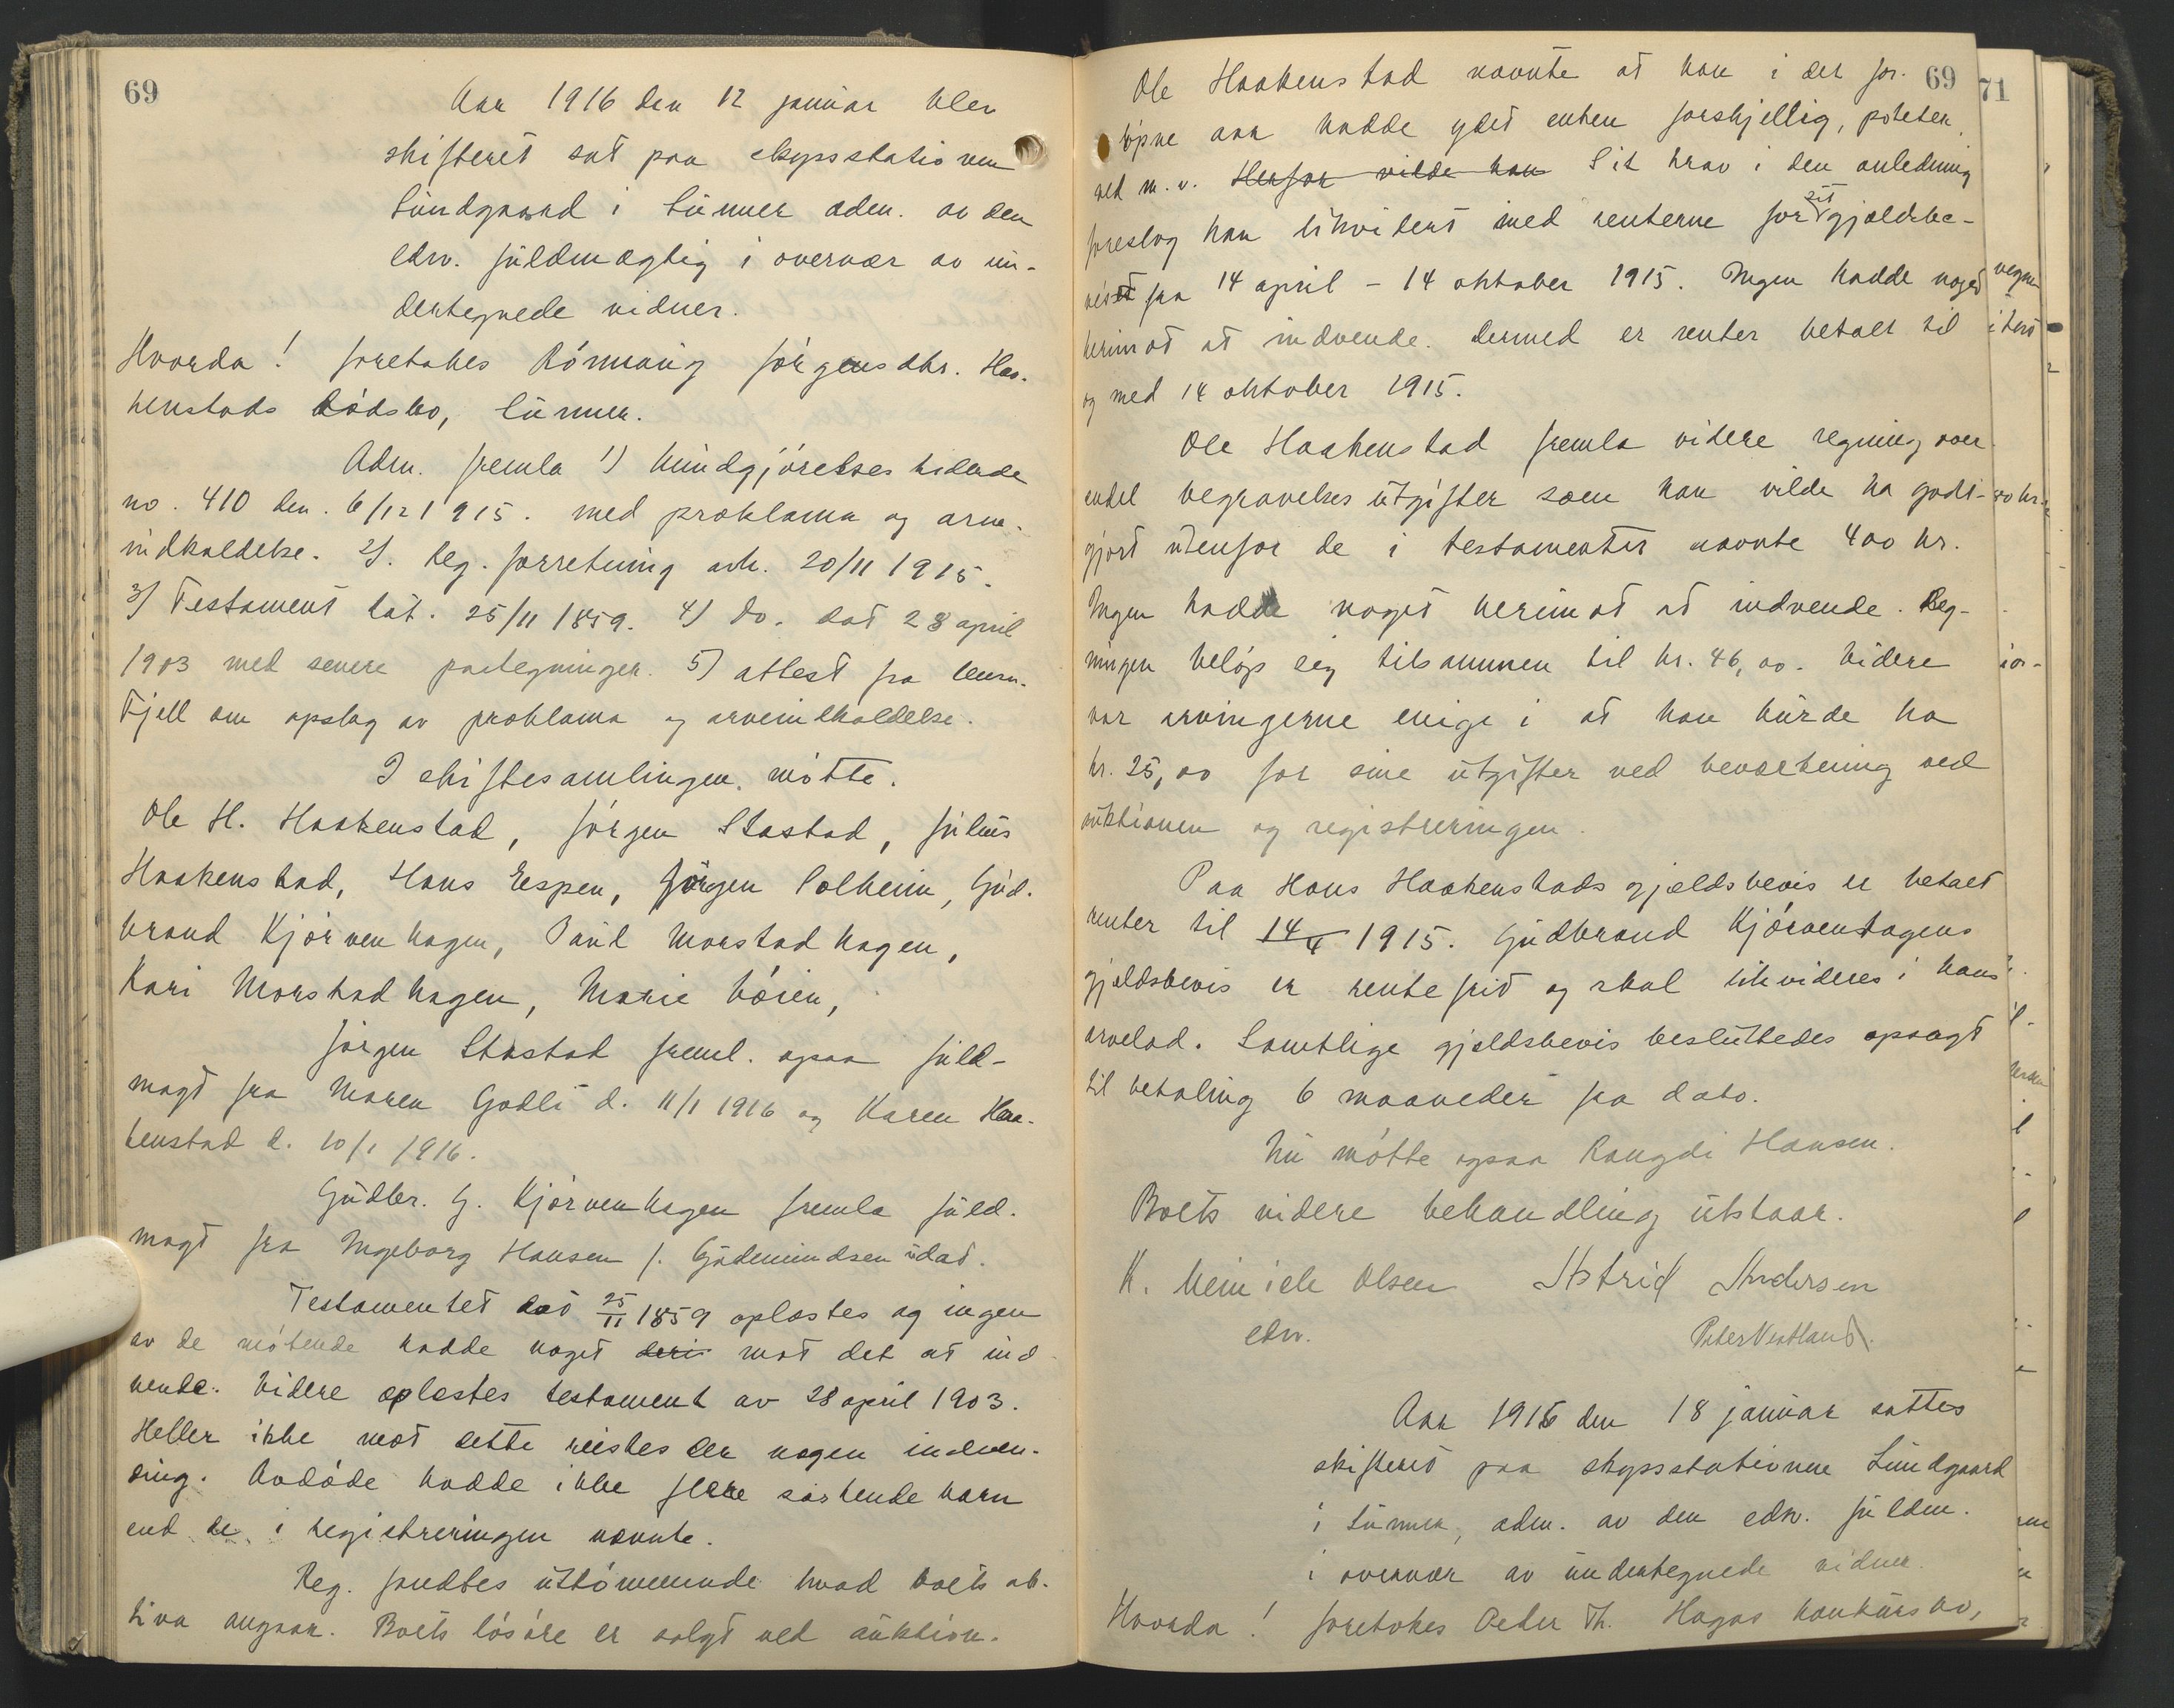 69
Aar 1916 den 12 januar blev
skifteret sat paa skysstationen
Lundgaard i Lunner adm. av den
edsv. fuldmægtig i overvær av un-
dertegnede vidner.
Hvorda! foretokes Rønnaug Jørgensdtr. Haa-
kenstads dødsbo, Lunner.
Adm. fremla 1) kundgjørelses tidende
no. 410 den. 6/12 1915. med proklama og arve-
indkaldelse. 2). Reg. forretning avh. 20/11 1915.
3) Testament dat. 25/11 1859. 4) do. dat 28 april
1903 med senere paategninger. 5) attest fra lensm.
Fjell om opslag av proklama og arveindkaldelse.
I skiftesamlingen møtte.
Ole H. Haakenstad, Jørgen Stastad, Julius
Haakenstad, Hans Espen, Jørgen Solheim, Gud-
brand Kjørvenhagen, Paul Morstadhagen,
Kari Morstadhagen, Marie Løien,
Jørgen Stastad freml. ogsaa fuld-
magt fra Maren Godli d. 11/1 1916 og Karen Haa-
kenstad d. 10/1 1916.
Gudbr. G. Kjørvenhagen fremla fuld-
magt fra Ingeborg Hansen f. Gudmundsen udat.
Testamentet dat 25/11 1859 oplæstes og ingen
av de møtende hadde noget deri mot det at ind-
vende. Videre oplæstes testament av 28 april 1903.
Heller ikke mot dette reistes der nogen indven-
ding. Avdøde hadde ikke flere søskende barn
end de i registreringen nævnte.
Reg. fandtes uttømmende hvad boets ak-
tiva angaar. Boets løsøre er solgt ved auktion.
69
71
Ole Haakenstad nævnte at han i det for-
løpne aar hadde ydet enken forskjellig, poteter,
ved m. v. Herfor vilde han Sit krav i den anledning
foreslog han likvidert med renterne for sit gjældsbe-
vis fra 14 april - 14 oktober 1915. Ingen hadde noget
herimot at indvende. Dermed er renter betalt til
og med 14 oktober 1915.
Ole Haakenstad fremla videre regning over
endel begravelsesutgifter som han vilde ha godt-
gjort utenfor de i testamentet nævnte 400 kr.
Ingen hadde noget herimot at indvende. Reg-
ningen beløp sig tilsammen til kr. 46,00. Videre
var arvingerne enige i at han burde ha
kr. 25,00 for sine utgifter ved bevertning ved
auktionen og registreringen.
Paa Hans Haakenstads gjældsbevis er betalt
renter til 14/4 1915. Gudbrand Kjørvenhagens
gjældsbevis er rentefrit og skal likvideres i hans
arvelod. Samtlige gjældsbevis besluttedes opsagt
til betaling 6 maaneder fra dato.
Nu møtte ogsaa Rangdi Hansen.
Boets videre behandling utstaar.
K. Meinich Olsen Astrid Andersen
edsv. Peter Vestland.
Aar 1916 den 18 januar sattes
skifteret paa skysstationen Lundgaard
i Lunner, adm. av den edsv. fuldm.
i overvær av undertegnede vidner.
Hvorda! foretokes Peder Th. Hagas konkursbo,